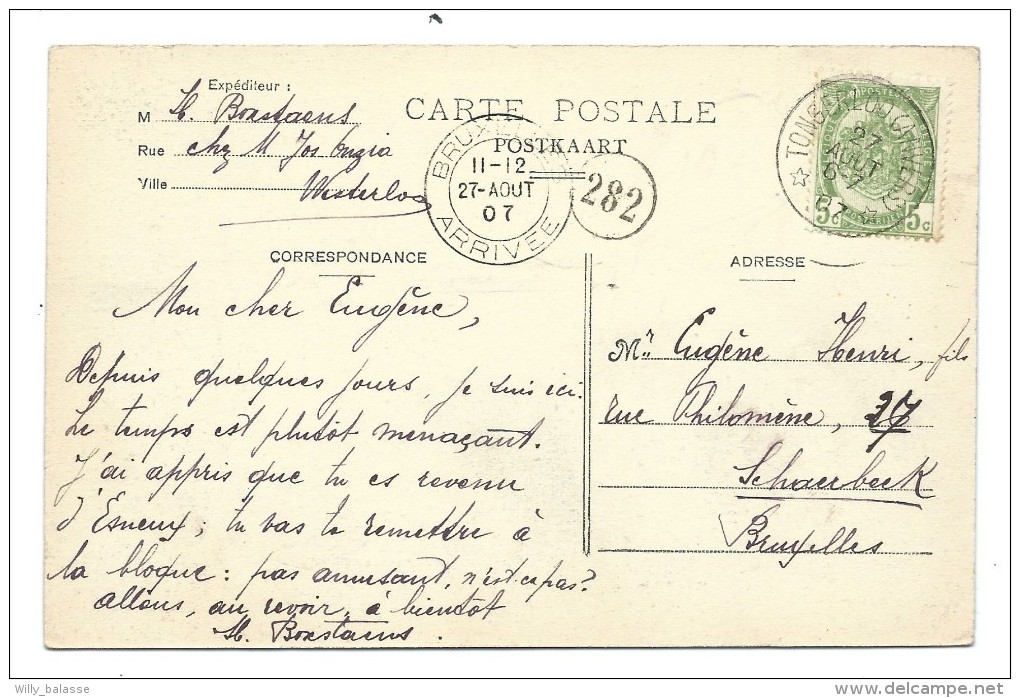 Expéditeur :
M H. Boxstaens
Rue chez M Jos
Ville Westerloo
CARTE POSTALE
POSTKAART
BRUXELLES
11-12
27-AOUT
07
ARRIVÉE
282
TONGERLOO
27
AOUT
07
5c 5c
CORRESPONDANCE
Mon cher Eugène,
Depuis quelques jours, je suis ici.
Le temps est plutôt menaçant.
J'ai appris que tu es revenu
d'Esneux; tu vas te remettre à
la bloque : pas amusant, n'est-ce pas?
allons, au revoir, à bientôt
H. Boxstaens.
ADRESSE
Mr Eugène Henri, fils
rue Philomène, 27
Schaerbeek
Bruxelles
Willy_balasse
delcampe.net